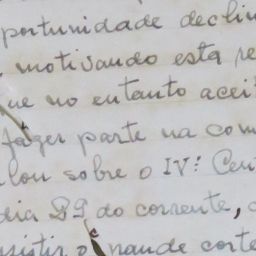 portunidade declin
, motivando esta re
ue no entanto acei
fazer parte na com
lou sobre o IV: Cen
dia 29 do corrente,
sistir o grande corte